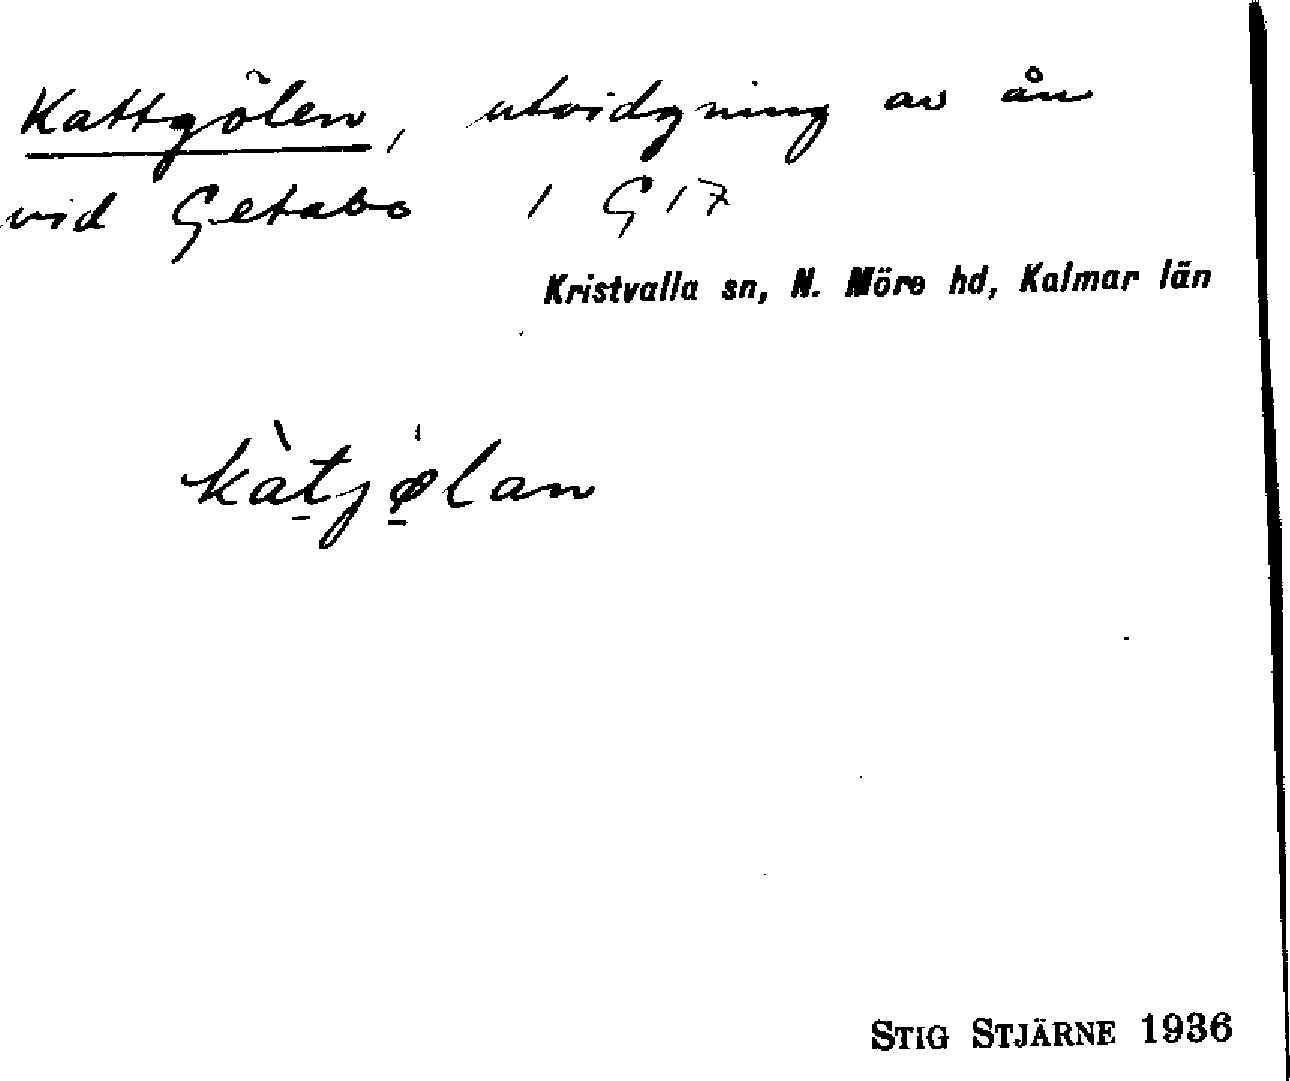 Kattgölen, utvidgning av ån
vid Getabo 1 G 17
Kristvalla sn, N. Möre hd, Kalmar län
kàtjø̀lan
STIG STJÄRNE 1936